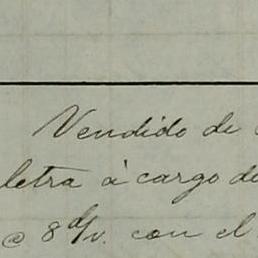 Vendido de
letra á cargo de
@ 8 d/v. con el